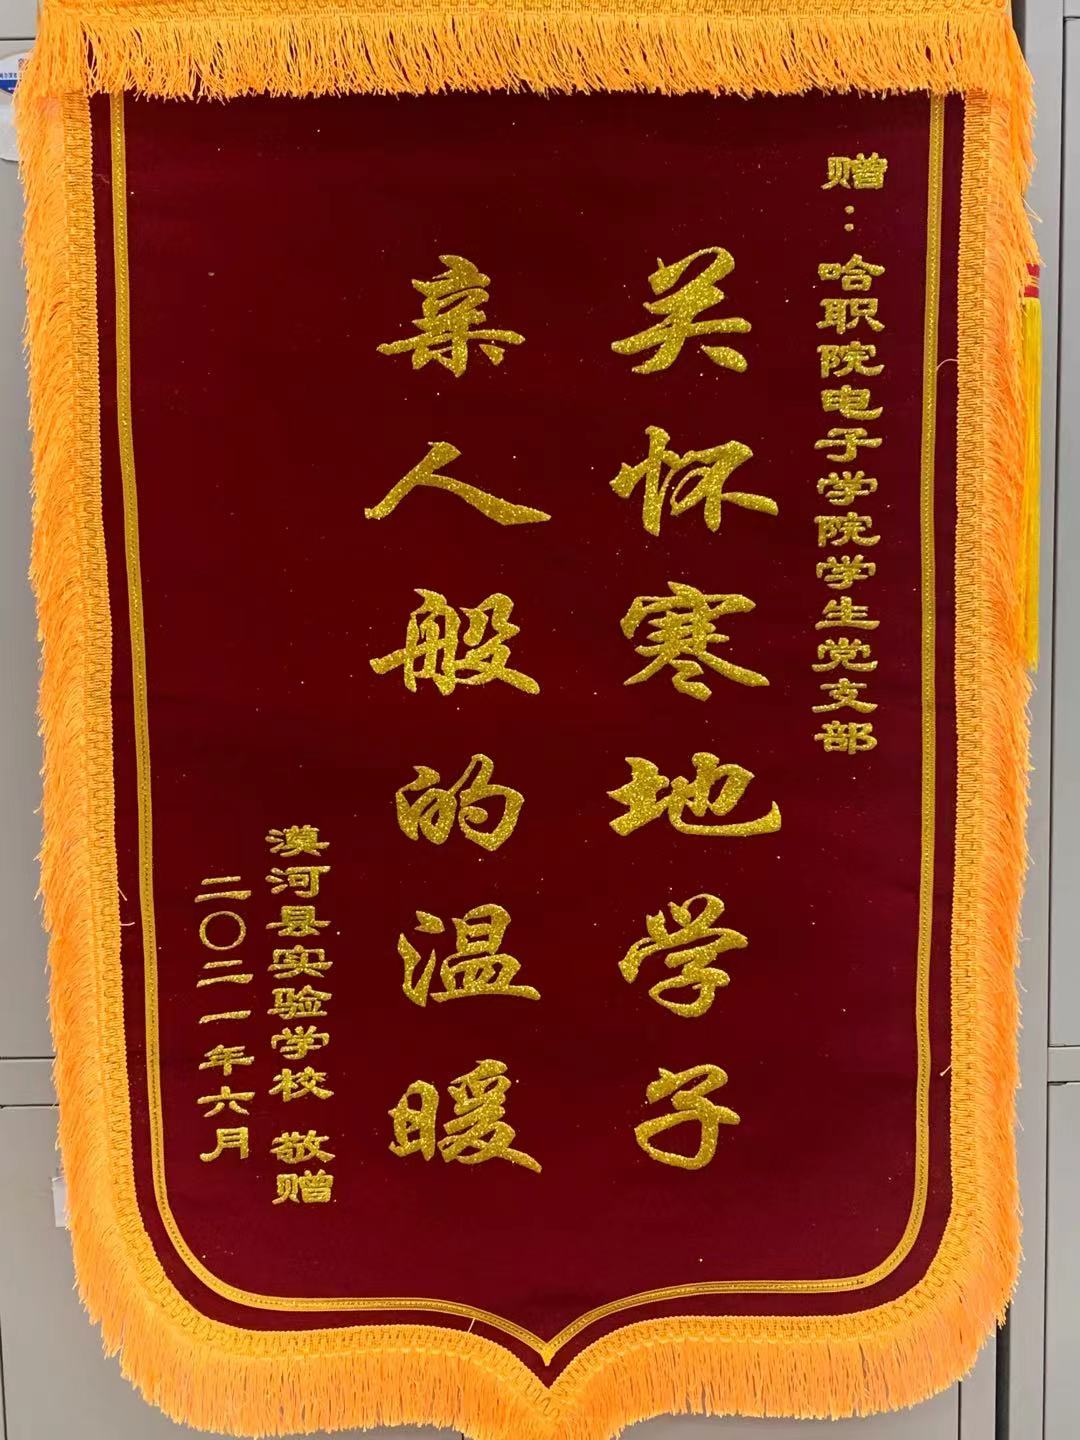 赠：哈职院电子学院学生党支部
关怀寒地学子
亲人般的温暖
漠河县实验学校 敬赠
二〇二一年六月